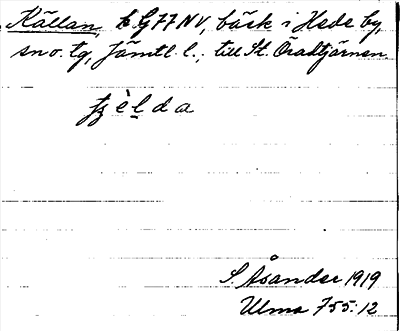 Källan, k. G77NV, bäck i Hede by,
sn o. tg, Jämtl. l.; till St. Öradtjärnen
tjèlda
S. Åsander 1919
Ulma 755:12